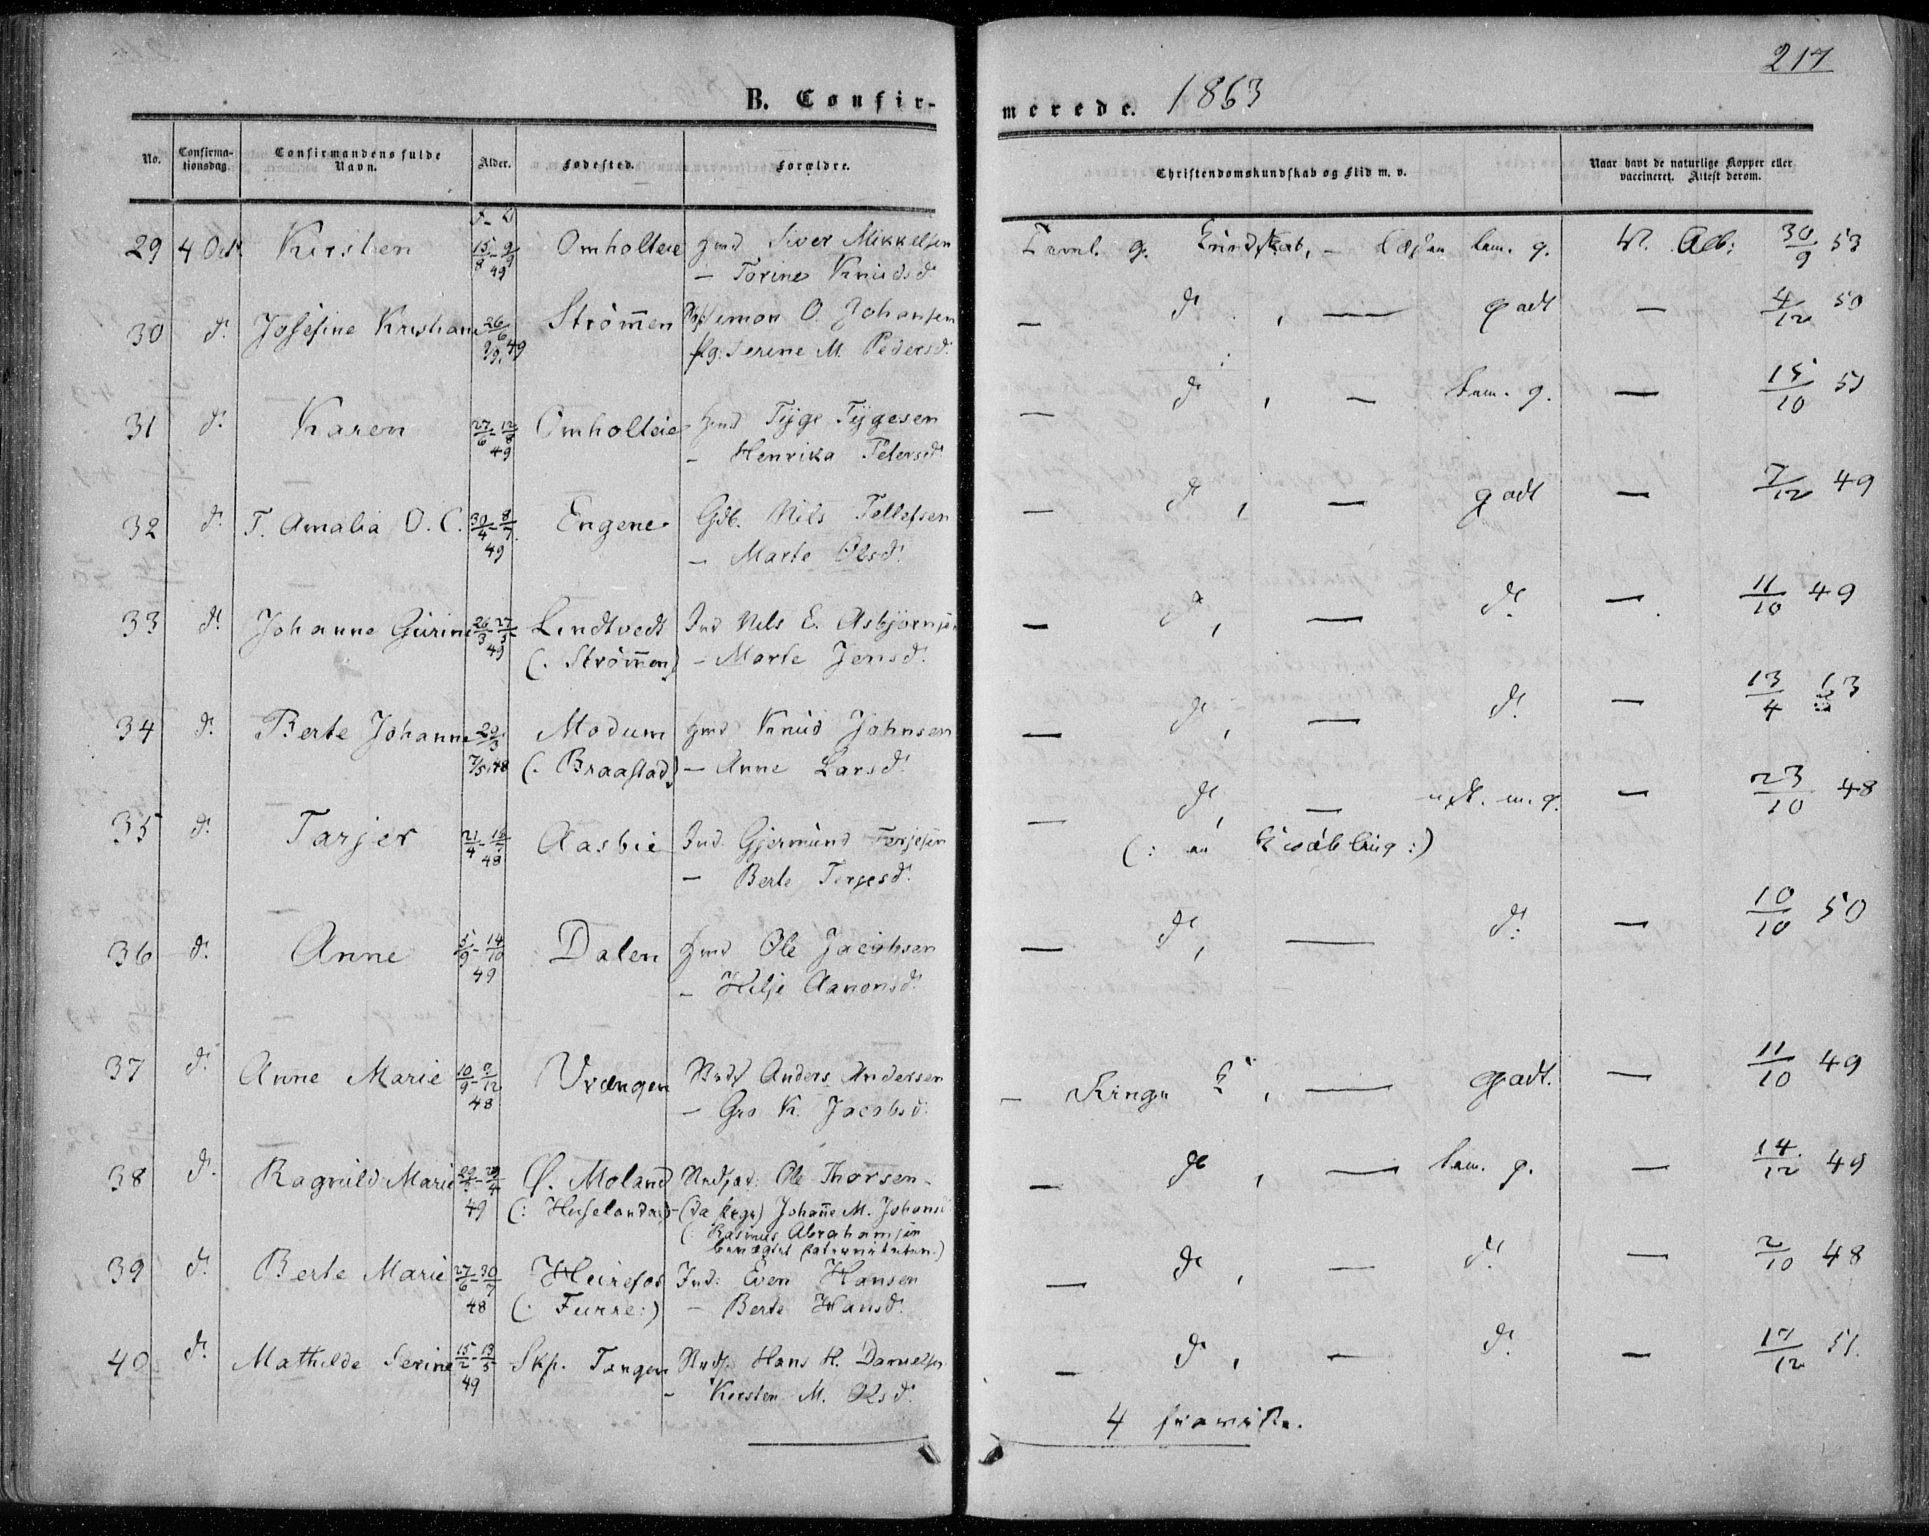 217
B. Confir-
merede. 1863
No.
Confirma-
tionsdag.
Confirmandens fulde
Navn.
Alder.
Fødested.
Forældre.
Christendomskundskab og Flid m. v.
Naar havt de naturlige Kopper eller
vaccineret. Attest derom.
29 4 Oct. Kirsten 15/8 - 9/9 49 Omholteie Hmd Siver Mikkelsen
— Torine Knudsd. Kundskab, — tem. g. 30/9 53
30 d. Josefine Kristiane 26/6 9/9 49 Strømmen Simon O. Johansen
Serine M. Pedersd. — d. , — godt — 4/12 50
31 d. Karen 27/6 - 12/8 49 Omholteie Hmd Tÿge Tÿgesen
— Henrika Petersd. — d. , — tem. g. — 15/10 51
32 d. T. Amalia O. C. 30/4 - 8/7 49 Engene Gdb. Nils Tellefsen
— Marte Olsd. — d. , — godt — 7/12 49
33 d. Johanne Gurine 26/3 - 27/5 49 Lindtvedt Ind Nils E. Asbjørnsen
(: Strømmen) — Marte Jensd. — d. , — d. — 11/10 49
34 d. Berte Johanne 20/3 7/5 48 Modum Hmd Knud Johnsen
(: Braastad) — Anne Larsd. — d. , — d. — 13/4 63
35 d. Tarjer 21/4 - 48 Aasbie Ind. Gjermund Terjesen
— Berte Terjesd. — d. , — m. g. — 23/10 48
36 d. Anne 5/9 - 14/10 49 Dalen Hmd Ole Jacobsen
— Hilje Aanonsd. — d. , — d. — 10/10 50
37 d. Anne Marie 10/9 - 9/12 48 Vrængen Anders Andersen
— Gro K. Jacobsd. — Ringe K , — godt. — 11/10 49
38 d. Ragnild Marie 49 Ø. Moland Ole Thorsen
Johanne M. Johansd.
(: Rasmus Abrahamsen
benægtet paterniteten.) — d. , — tem. g. — 14/12 49
39 d. Berte Marie 27/6 - 30/7 48 Heirefos Ind: Even Hansen
(: Furre:) — Berte Hansd. — d. , — d. — 2/10 48
40 d. Mathilde Serine 15/2 - 13/5 49 Skp. Tangen Hans H. Danielsen
— Kirsten M. Olsd. — d. , — d. — 17/12 51.
4